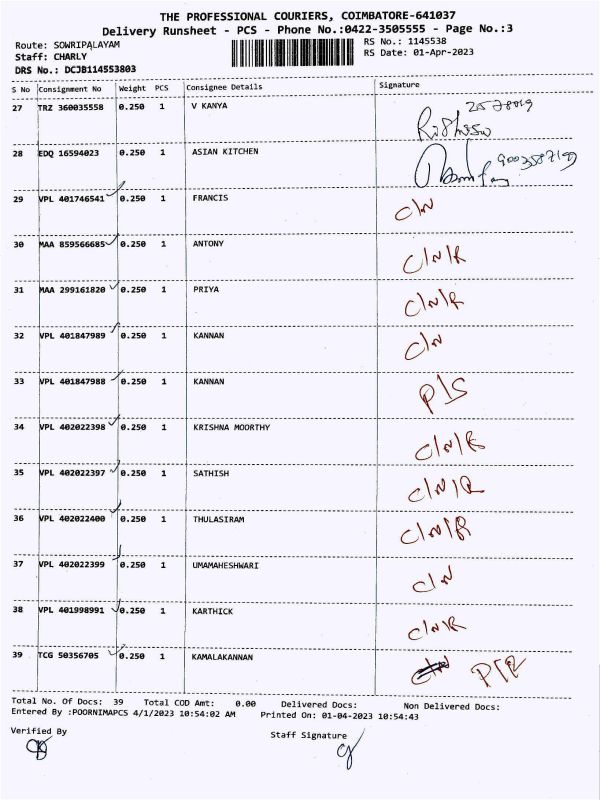 THE PROFESSIONAL COURIERS, COIMBATORE-641037
Delivery Runsheet - PCS - Phone No.:0422-3505555 - Page No.:3
Route: SOWRIPALAYAM RS No.: 1145538
Staff: CHARLY RS Date: 01-Apr-2023
DRS No.: DCJB114553803
S No Consignment No Weight PCS Consignee Details Signature
27 TRZ 360035558 0.250 1 V KANYA
28 EDQ 16594023 0.250 1 ASIAN KITCHEN
29 VPL 401746541 0.250 1 FRANCIS C/N
30 MAA 859566685 0.250 1 ANTONY C/N/R
31 MAA 299161820 0.250 1 PRIYA C/N/R
32 VPL 401847989 0.250 1 KANNAN C/N
33 VPL 401847988 0.250 1 KANNAN P/S
34 VPL 402022398 0.250 1 KRISHNA MOORTHY C/N/R
35 VPL 402022397 0.250 1 SATHISH C/N/R
36 VPL 402022400 0.250 1 THULASIRAM C/N/R
37 VPL 402022399 0.250 1 UMAMAHESHWARI C/N
38 VPL 401998991 0.250 1 KARTHICK C/N/R
39 TCG 50356705 0.250 1 KAMALAKANNAN
Total No. Of Docs: 39 Total COD Amt: 0.00 Delivered Docs: Non Delivered Docs:
Entered By :POORNIMAPCS 4/1/2023 10:54:02 AM Printed On: 01-04-2023 10:54:43
Verified By Staff Signature